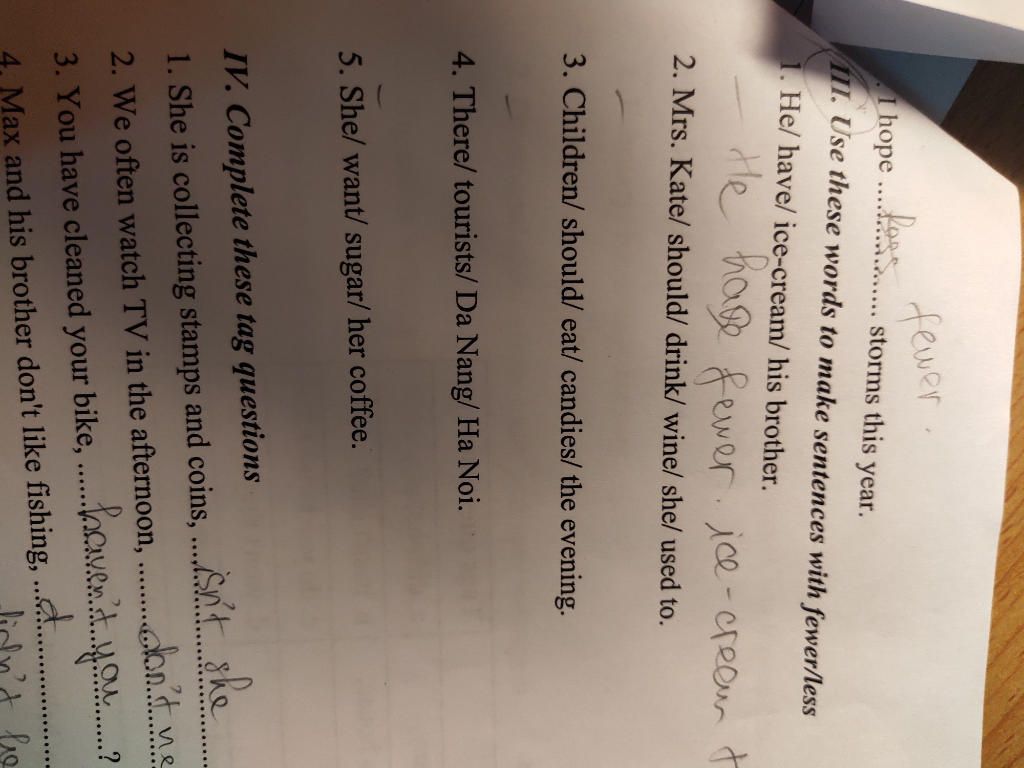 fewer.
. I hope .................... storms this year.
III. Use these words to make sentences with fewer/less
1. He/ have/ ice-cream/ his brother.
– He have fewer. ice-cream
2. Mrs. Kate/ should/ drink/ wine/ she/ used to.
–
3. Children/ should/ eat/ candies/ the evening.
–
4. There/ tourists/ Da Nang/ Ha Noi.
–
5. She/ want/ sugar/ her coffee.
IV. Complete these tag questions
1. She is collecting stamps and coins, ....isn't she..........
2. We often watch TV in the afternoon, ..........
3. You have cleaned your bike, ......haven't you......?
4. Max and his brother don't like fishing, ....